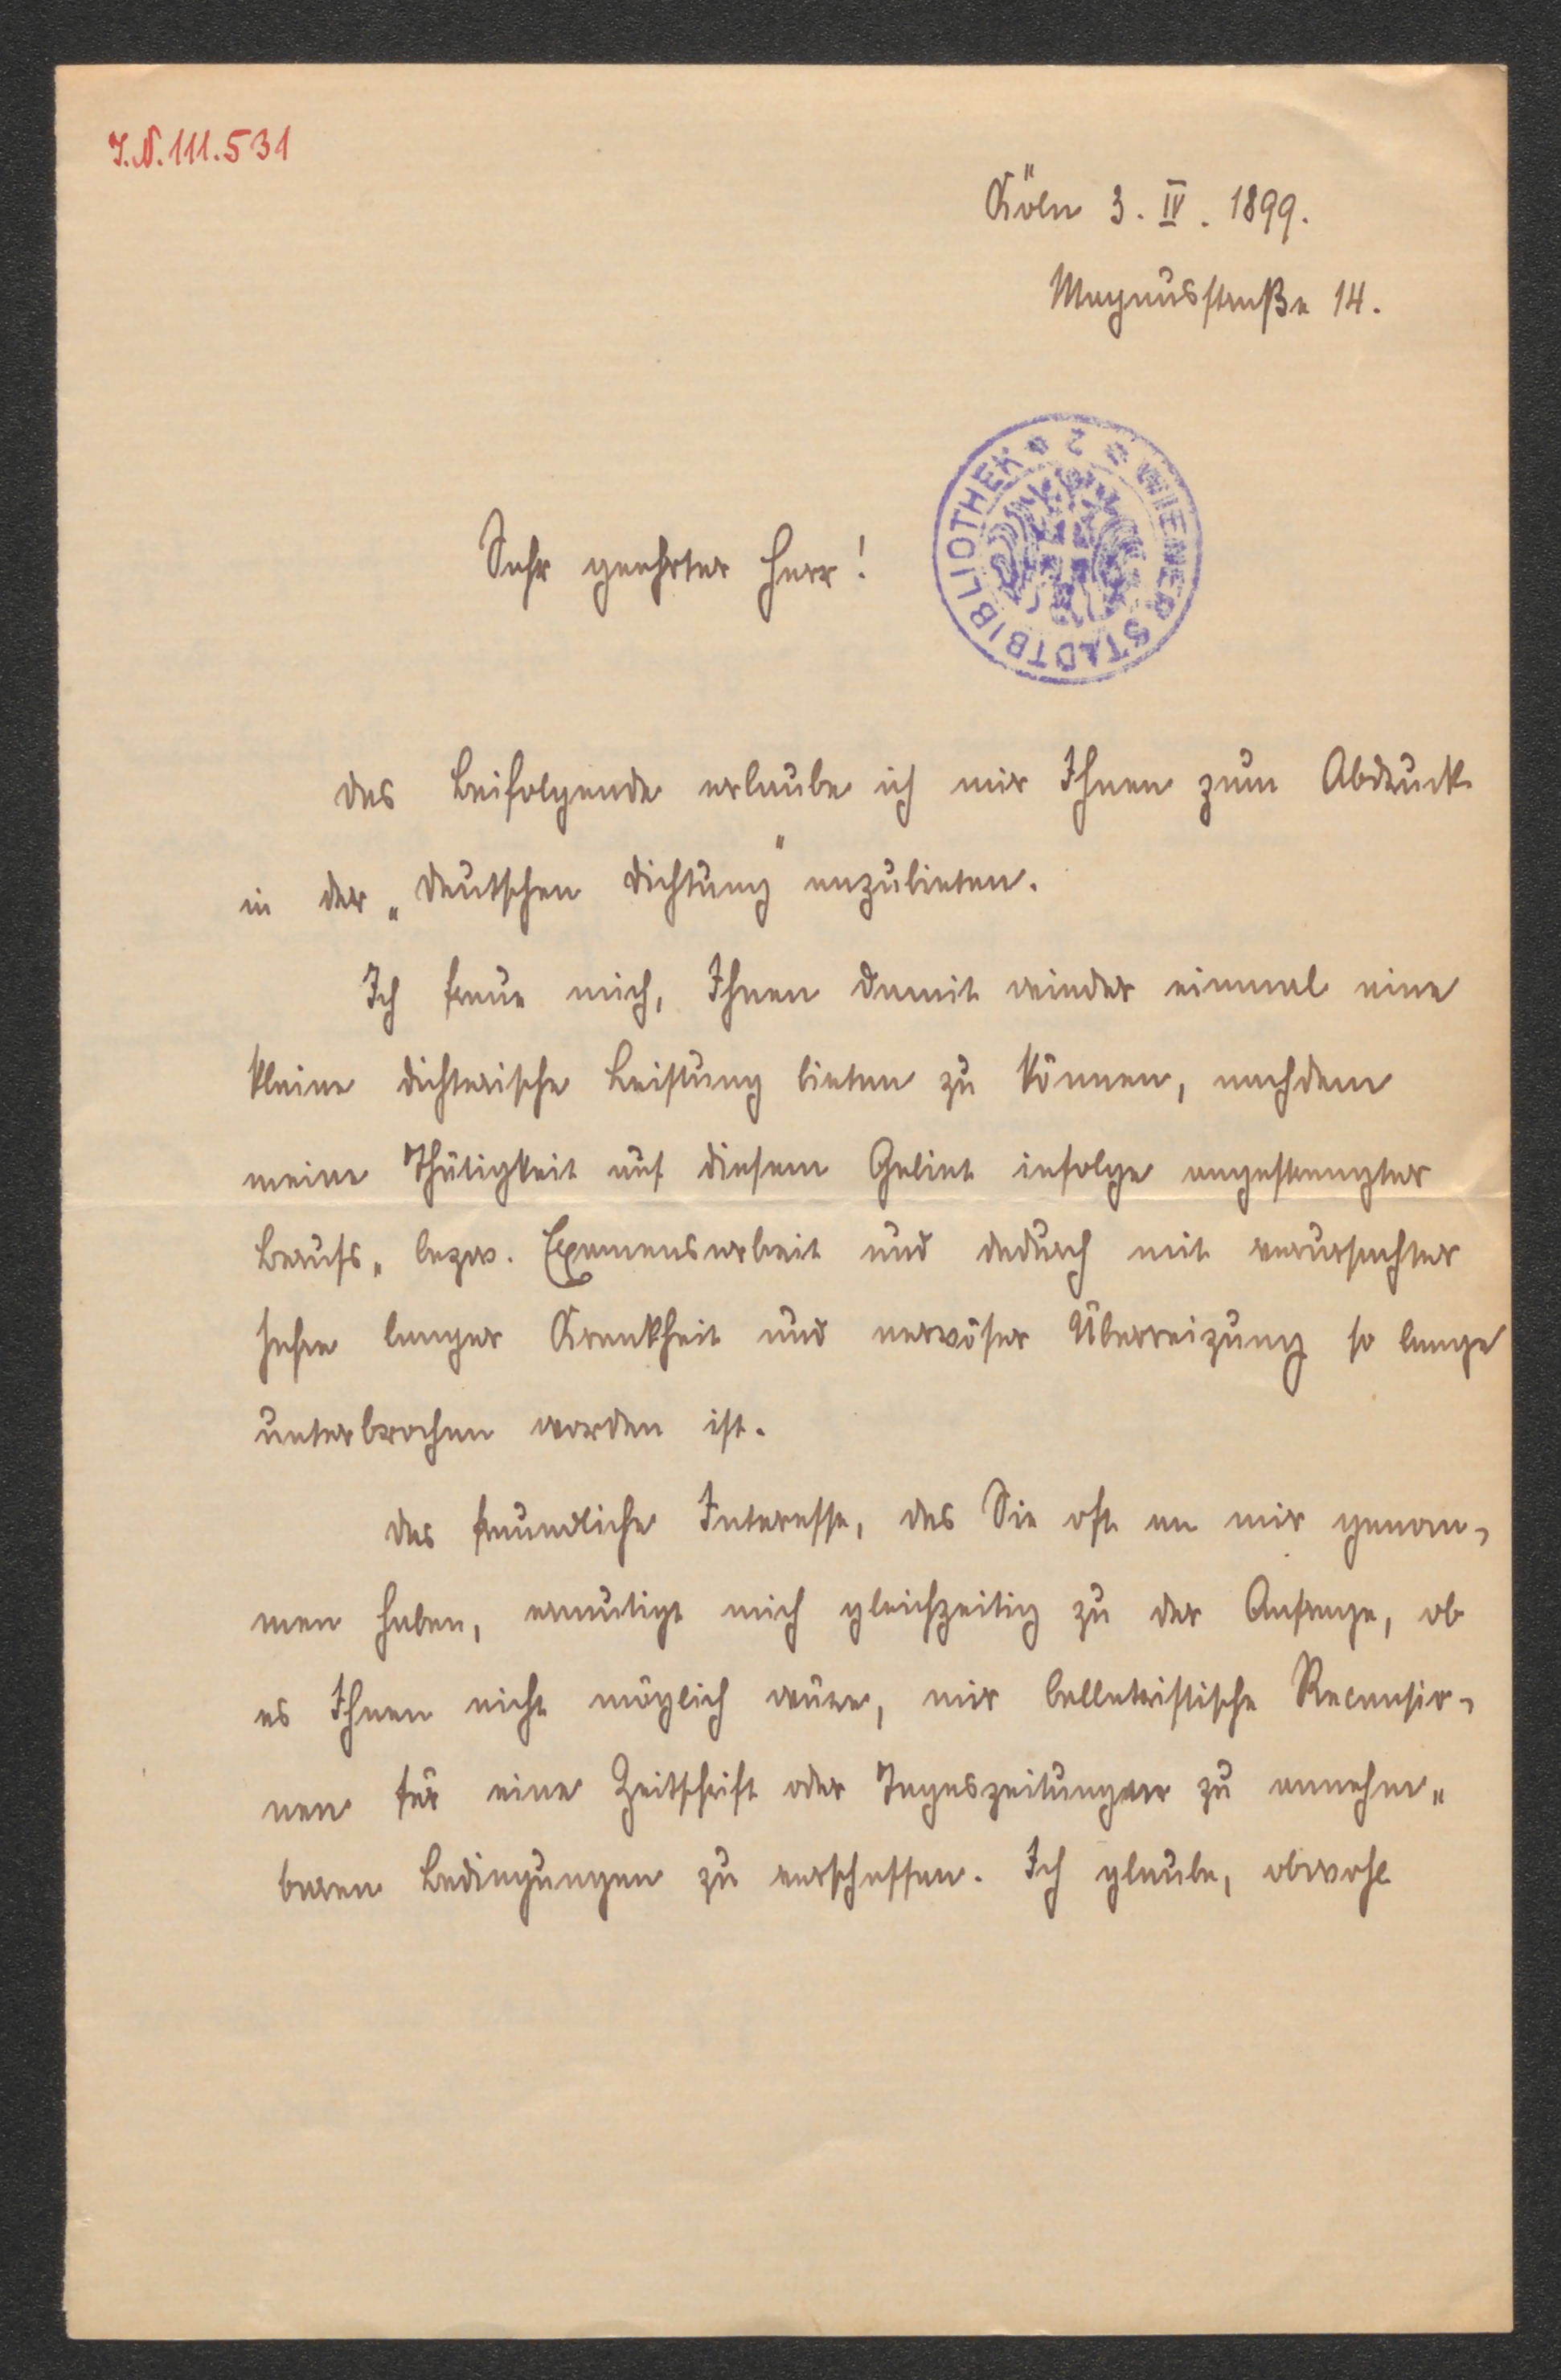 I.N. 111.531
Köln 3. IV. 1899.
Magnusstraße 14.
WIENER STADTBIBLIOTHEK 2
Sehr geehrter Herr!
Das Beifolgende erlaube ich mir Ihnen zum Abdruck
in der „Deutschen Dichtung" anzubieten.
Ich freue mich, Ihnen damit wieder einmal eine
kleine dichterische Leistung bieten zu können, nachdem
meine Thätigkeit auf diesem Gebiet infolge angestrengter
Berufs- bezw. Examensarbeit und dadurch mit verursachter
sehr langer Krankheit und nervöser Überreizung so lange
unterbrochen worden ist.
Das freundliche Interesse, das Sie oft an mir genom-
men haben, ermutigt mich gleichzeitig zu der Anfrage, ob
es Ihnen nicht möglich wäre, mir belletristische Recensio-
nen für eine Zeitschrift oder Tageszeitungen zu annehm-
baren Bedingungen zu verschaffen. Ich glaube, obwohl